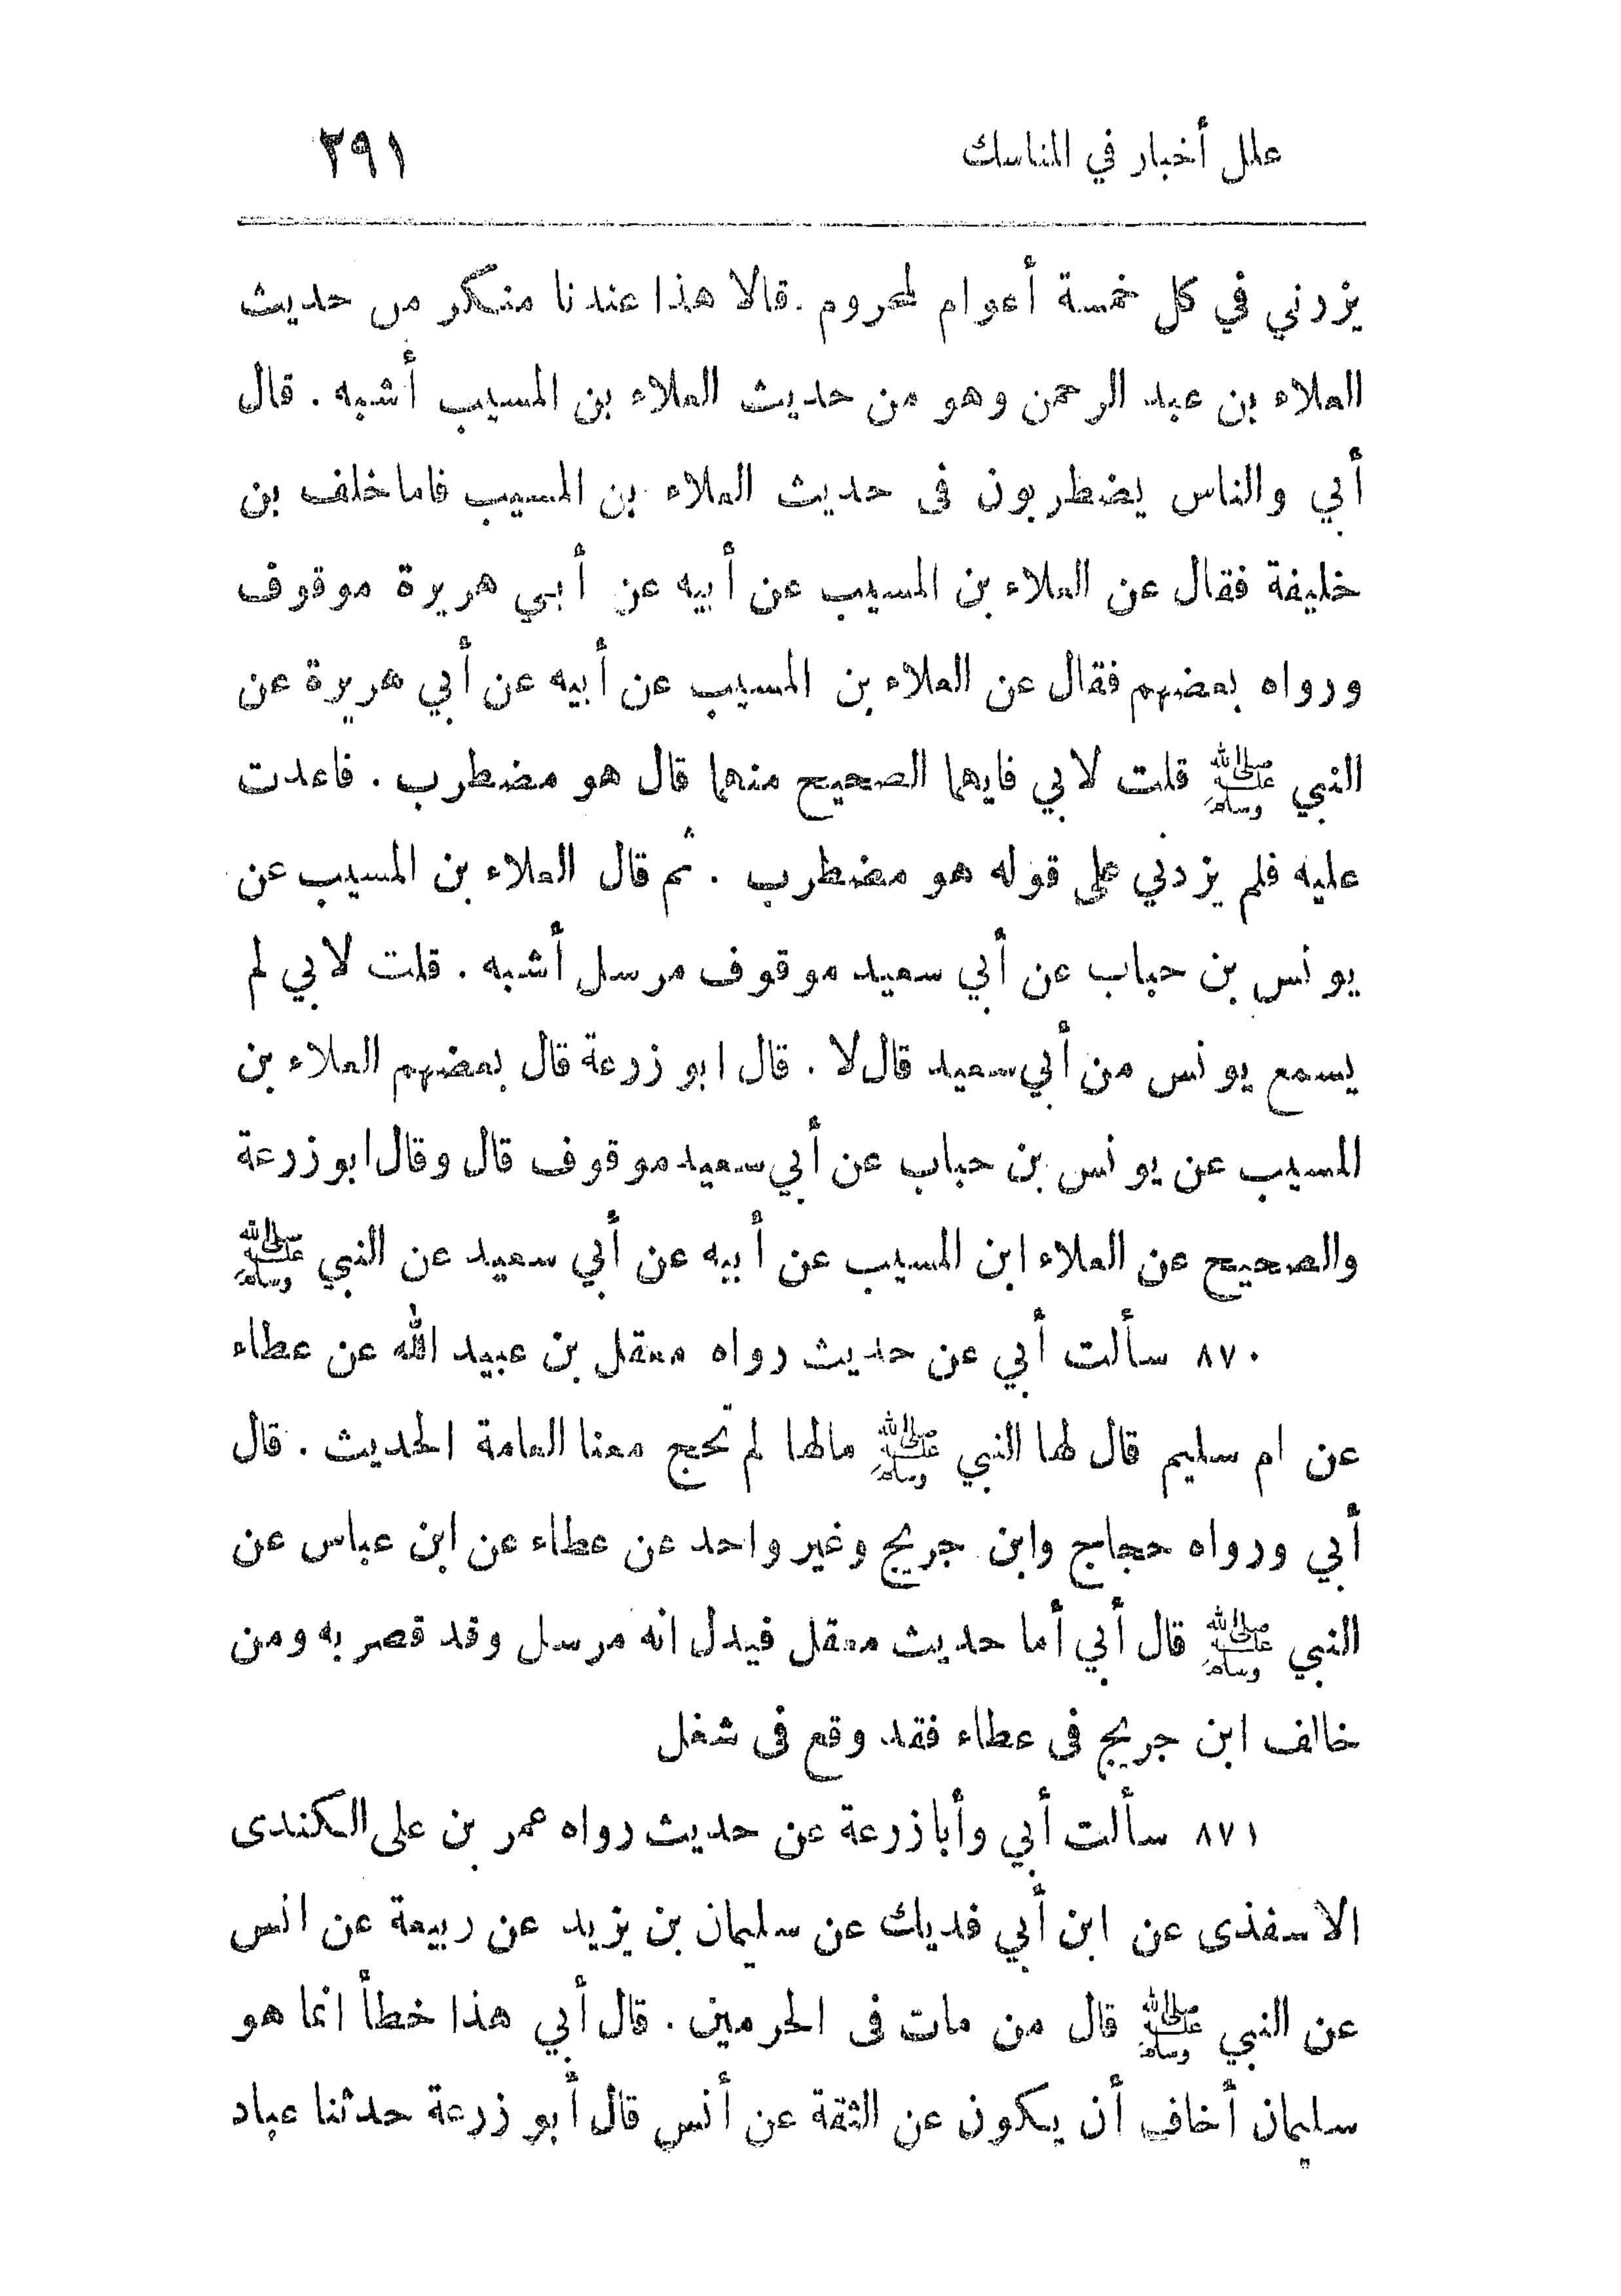 علل أخبار في المناسك ٢٩١
يزرني في كل خمسة أعوام لمحروم . قالا هذا عندنا منكر من حديث
العلاء بن عبد الرحمن وهو من حديث العلاء بن المسيب أشبه . قال
أبي والناس يضطربون فى حديث العلاء بن المسيب فاما خلف بن
خليفة فقال عن العلاء بن المسيب عن أبيه عن أبي هريرة موقوف
ورواه بعضهم فقال عن العلاء بن المسيب عن أبيه عن أبي هريرة عن
النبي ﷺ قلت لابي فايهما الصحيح منهما قال هو مضطرب . فاعدت
عليه فلم يزدني على قوله هو مضطرب . ثم قال العلاء بن المسيب عن
يونس بن حباب عن أبي سعيد موقوف مرسل أشبه . قلت لابي لم
يسمع يونس من أبي سعيد قال لا . قال ابو زرعة قال بعضهم العلاء بن
المسيب عن يونس بن حباب عن أبي سعيد موقوف قال وقال ابو زرعة
والصحيح عن العلاء ابن المسيب عن أبيه عن أبي سعيد عن النبي ﷺ
٨٧٠ سألت أبي عن حديث رواه معقل بن عبيد الله عن عطاء
عن ام سليم قال لها النبي ﷺ مالها لم تحج معنا العامة الحديث . قال
أبي ورواه حجاج وابن جريج وغير واحد عن عطاء عن ابن عباس عن
النبي ﷺ قال أبي أما حديث معقل فيدل انه مرسل وقد قصر به ومن
خالف ابن جريج فى عطاء فقد وقع فى شغل
٨٧١ سألت أبي وأبا زرعة عن حديث رواه عمر بن على الكندى
الاسفذى عن ابن أبي فديك عن سليمان بن يزيد عن ربيعة عن انس
عن النبي ﷺ قال من مات فى الحرمين . قال أبي هذا خطأ انما هو
سليمان أخاف أن يكون عن الثقة عن أنس قال أبو زرعة حدثنا عباد